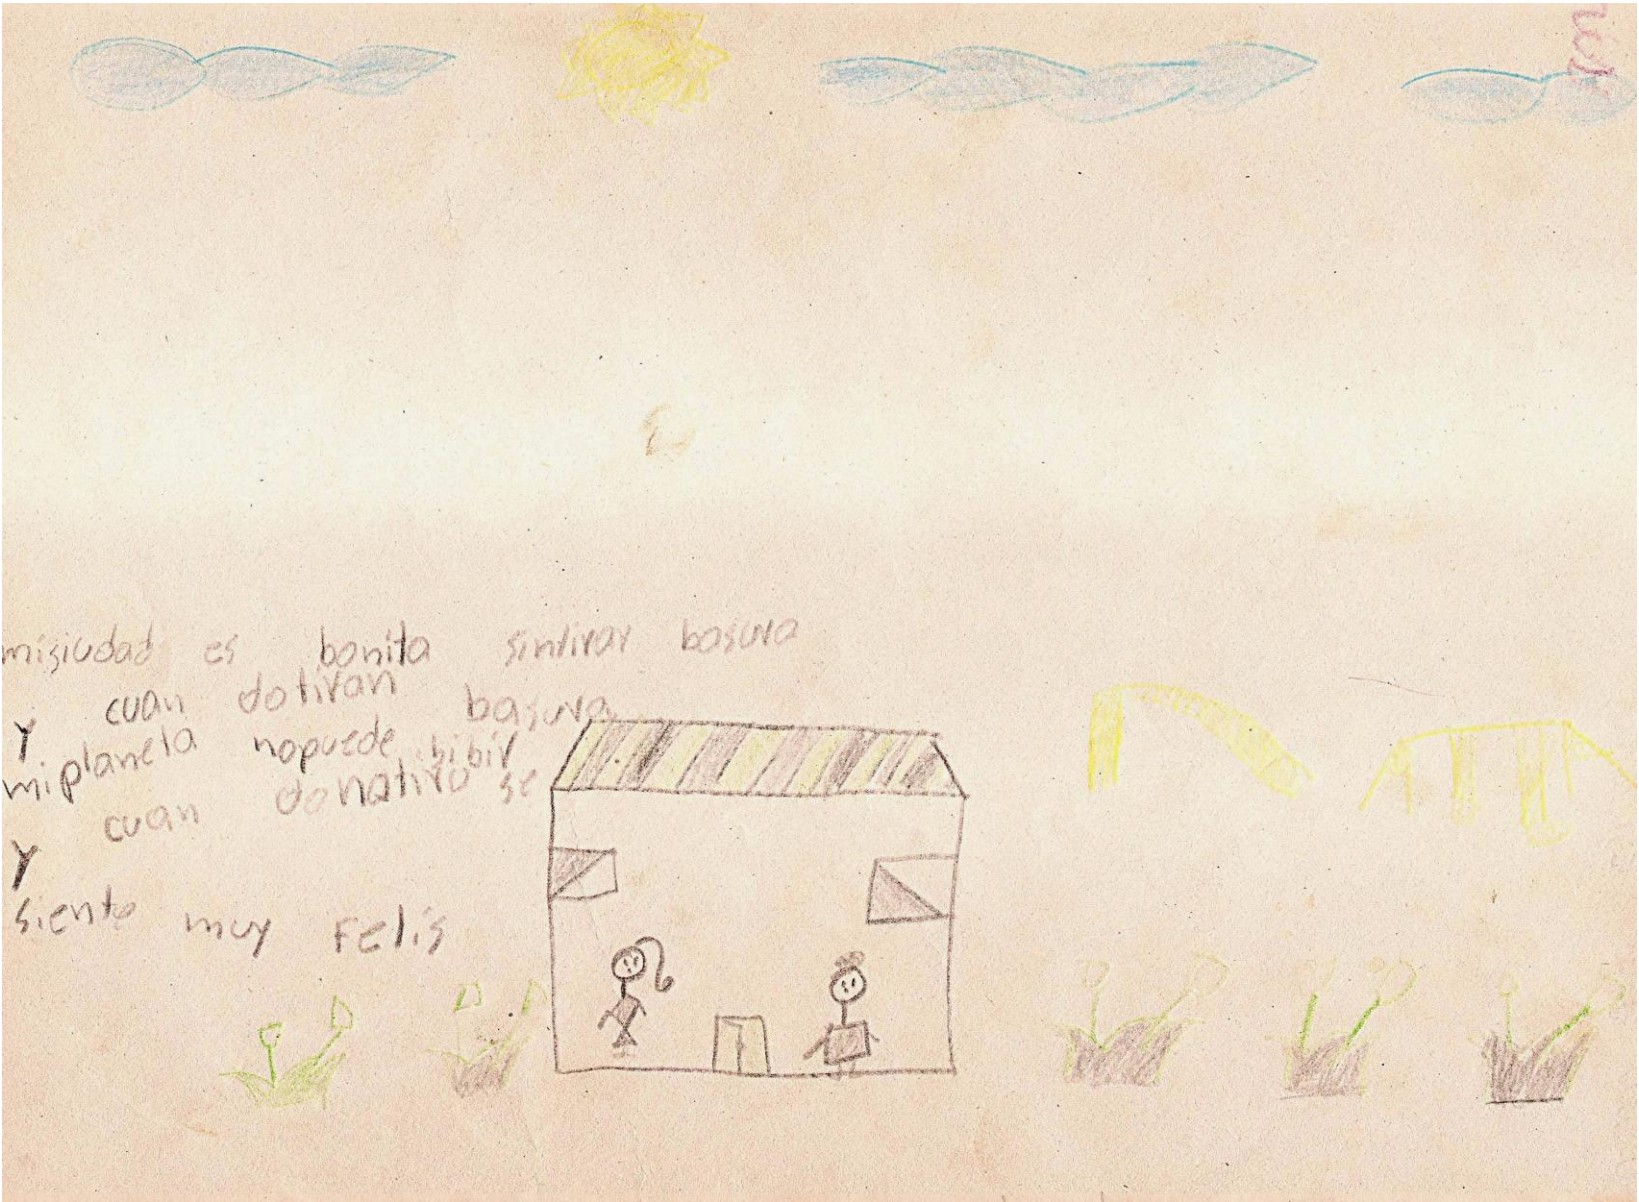 misiudad es bonita sintirar basura
Y cuan dotiran basura
miplaneta nopuede bibir
Y cuan donatira se
siente muy Felis